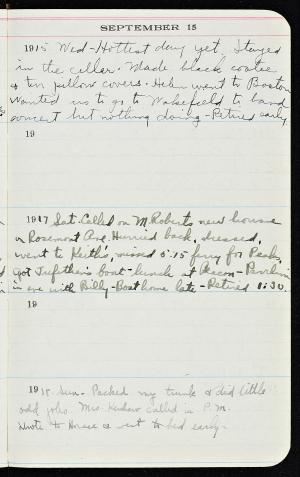 SEPTEMBER 15
1915 Wed - Hottest day yet, Stayed
in the cellar. Made black coatie
& ten pillow covers. Helen went to Boston
Wanted us to go to Wakefield to band
concert but nothing doing - Retired early.
19
1917 Sat. Called on M. Roberts new house
on Rosemont Ave. Hurried back, dressed,
went to Keith's, missed 5.15 ferry for Peaks,
Got boat - lunch at
in eve with Billy - Boat home late - Retired 1:30.
19
1918 Sun. Packed my trunk & did little
odd jobs. Mrs. called in P.M.
Wrote to Horace & went to bed early.